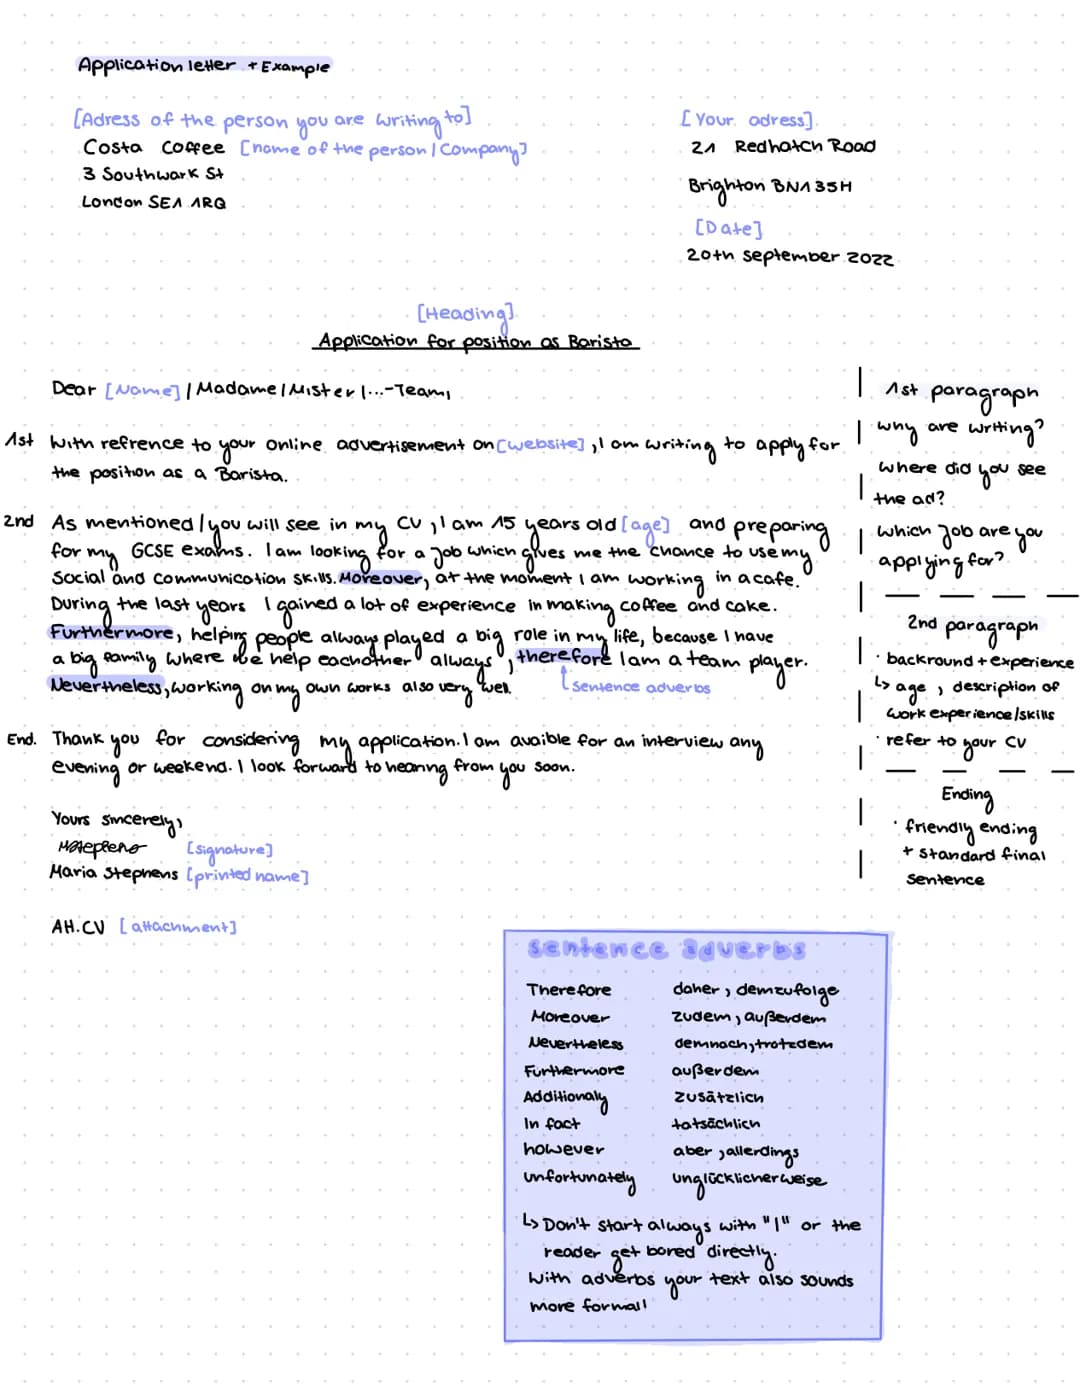 Application letter + Example
[Adress of the person you are writing to]
Costa Coffee [name of the person / Company]
3 Southwark St
London SE1 1RQ
[Your adress]
21 Redhatch Road
Brighton BN1 3SH
[Date]
20th september 2022
[Heading]
Application for position as Barista
Dear [Name] / Madame / Mister / ...-Team,
1st With refrence to your online advertisement on [website], I am writing to apply for
the position as a Barista.
2nd As mentioned / you will see in my CV, I am 15 years old [age] and preparing
for my GCSE exams. I am looking for a job which gives me the chance to use my
Social and communication skills. Moreover, at the moment I am working in a cafe.
During the last years I gained a lot of experience in making coffee and cake.
Furthermore, helping people always played a big role in my life, because I have
a big family where we help eachother always, therefore I am a team player.
Nevertheless, working on my own works also very well.
sentence adverbs
End. Thank you for considering my application. I am avaible for an interview any
evening or weekend. I look forward to hearing from you soon.
Yours sincerely,
[signature]
Maria Stephens [printed name]
AH.CV [attachment]
1st paragraph
why are writing?
where did you see
the ad?
which job are you
applying for?
2nd paragraph
· backround + experience
↳ age, description of
work experience/skills
· refer to your CV
Ending
· friendly ending
+ standard final
sentence
sentence adverbs
Therefore daher, demzufolge
Moreover zudem, außerdem
Nevertheless demnach, trotzdem
Furthermore außerdem
Additionaly zusätzlich
In fact tatsächlich
however aber, allerdings
unfortunately unglücklicherweise
↳ Don't start always with "I" or the
reader get bored directly.
With adverbs your text also sounds
more formal!